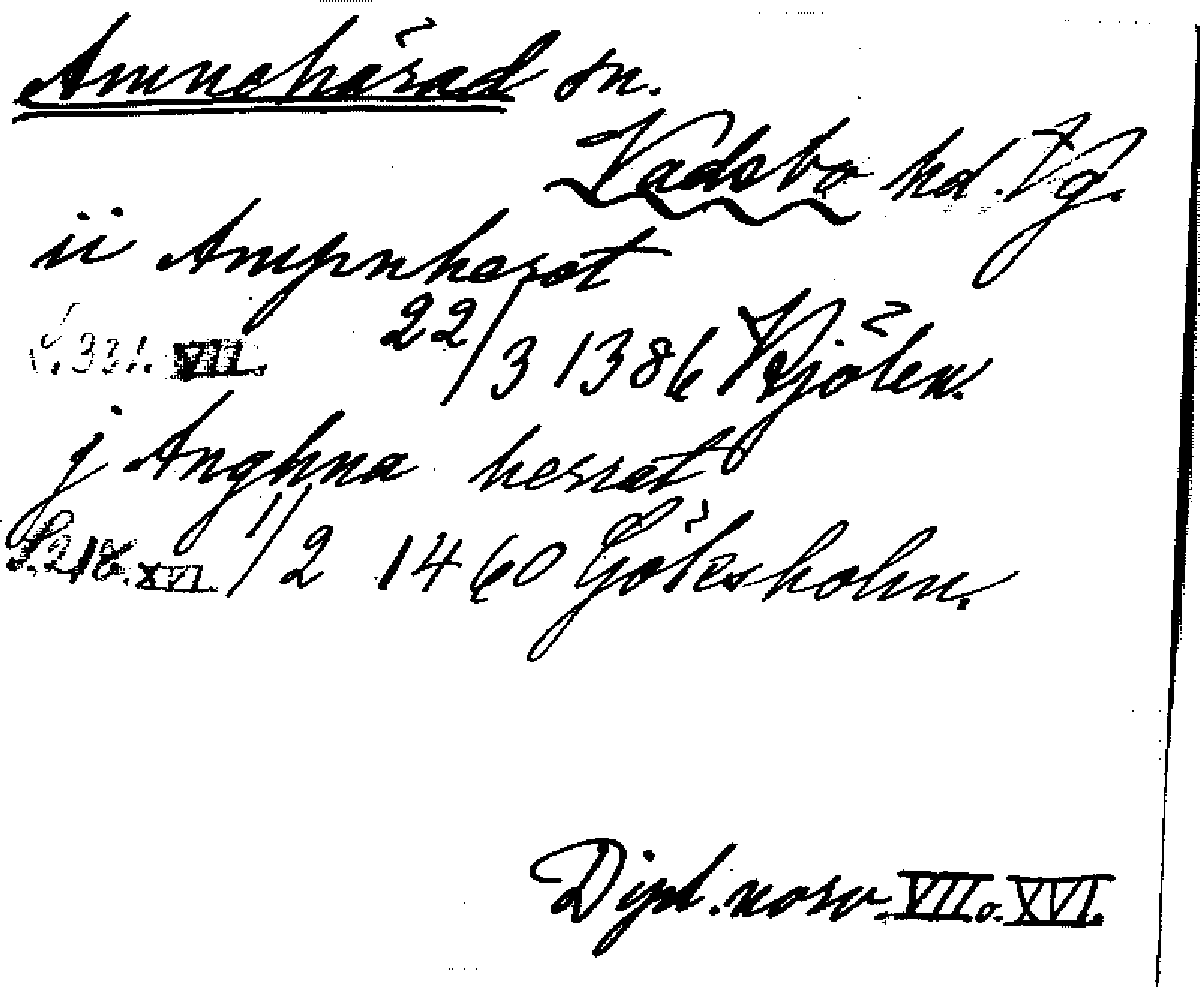 Amnehärad sn.
Vadsbo hd. Vg.
ii Ampnherat
S. 331. VII. 22/3 1386 Kjölen.
j Anghna herrat
S. 218. XVI. 1/2 1460 Göksholm.
Dipl. norv. VII o. XVI.